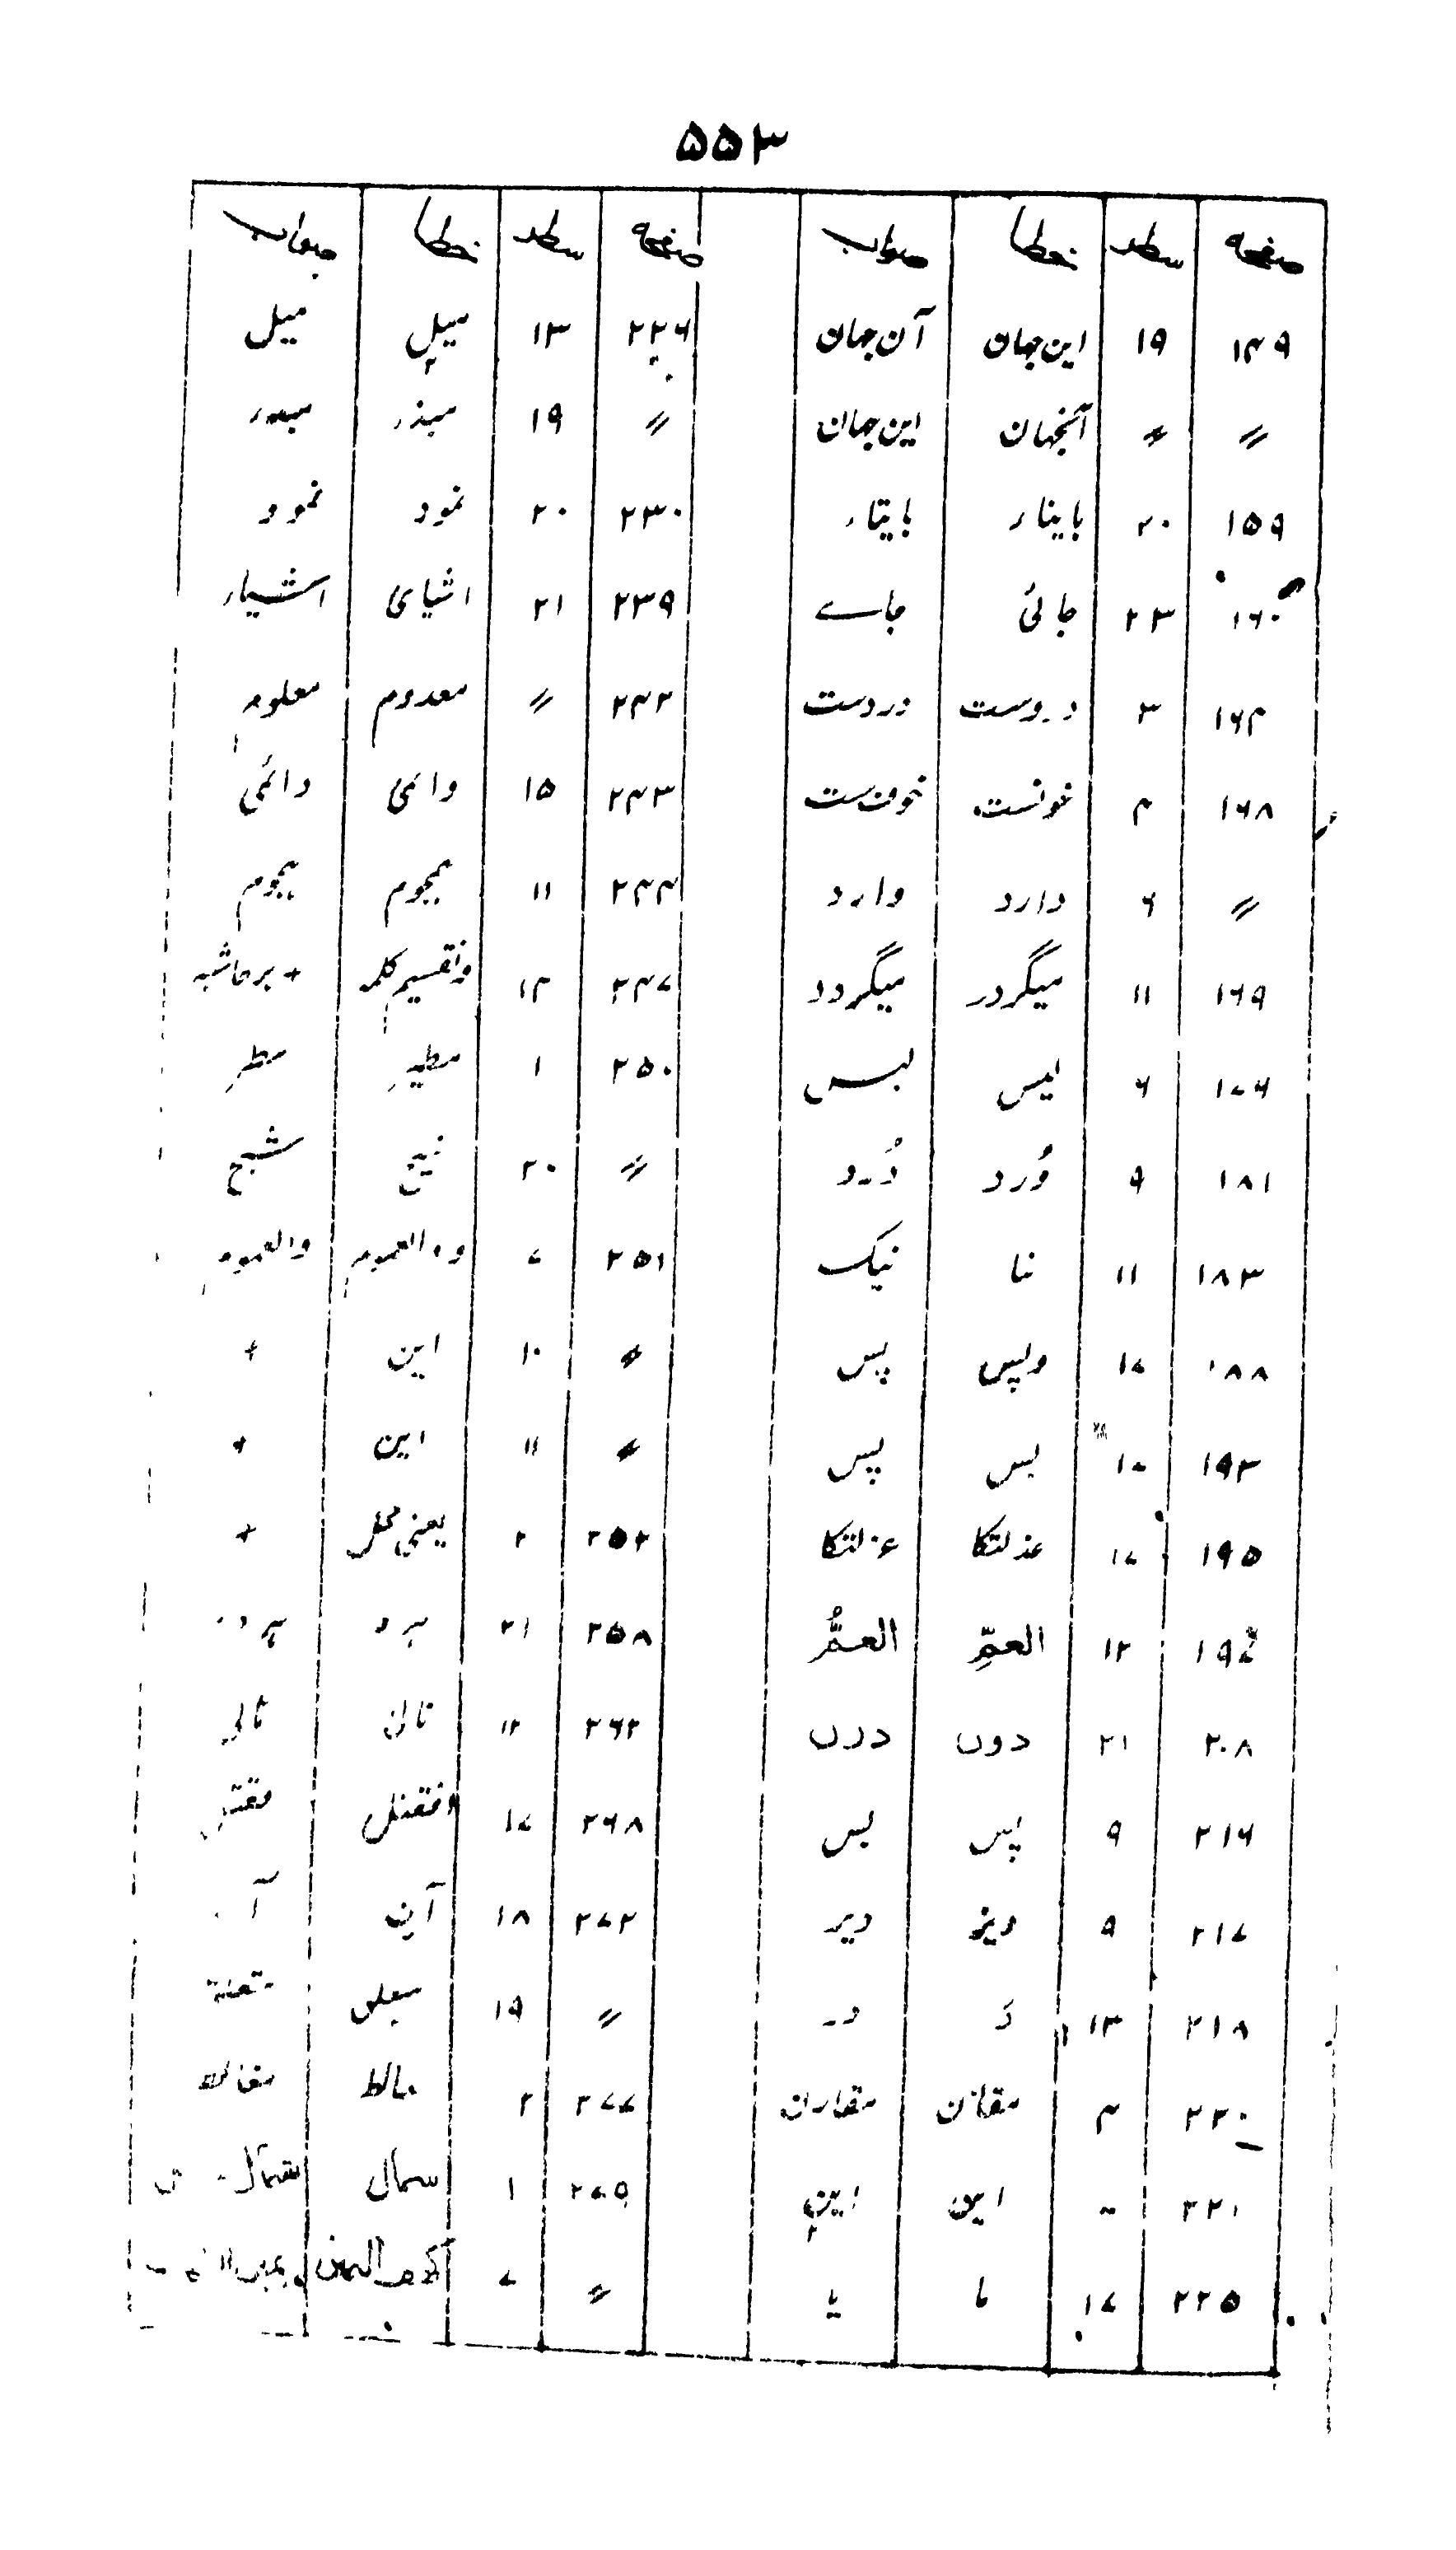 ۵۵۳
صفحه سطر خطا صواب صفحه سطر خطا صواب
۱۴۹ ۱۹ این جهان آن جهان ۲۲۶ ۱۳ میل میل
〃 〃 آنجهان این جهان 〃 ۱۹
۱۵۹ ۲۰ باینار بایتار ۲۳۰ ۲۰ نمود نمود
۱۶۰ ۲۳ جائی جاے ۲۳۹ ۲۱ اشیای اشیار
۱۶۴ ۳ دروست دردست ۲۴۲ 〃 معدوم معلوم
۱۶۸ ۴ خونست خوف ست ۲۴۳ ۱۵ وائمی دائمی
〃 ۶ دارد وارد ۲۴۴ ۱۱ ہمجوم ہجوم
۱۶۹ ۱۱ میگردر میگردد ۲۴۷ ۱۴ وتقسیم کلمہ + برحاشیہ
۱۷۶ ۶ لیس لبس ۲۵۰ ۱ مطیر مطر
۱۸۱ ۹ وُرد دُرد 〃 ۲۰ شبح
۱۸۳ ۱۱ نا نیک ۲۵۱ ۷ و والعموم والعموم
۱۸۸ ۱۷ وپس پس 〃 ۱۰ این +
۱۹۳ ۱۷ بس پس 〃 ۱۱ این +
۱۹۵ ۱۷ عذلتکا عزلتکا ۲۵۲ ۲ یعنی محل +
۱۹۷ ۱۲ العمِّ العمُّ ۲۵۸ ۲۱
۲۰۸ ۲۱ دون درن ۲۶۲ ۱۲ تالی
۲۱۶ ۹ پس بس ۲۶۸ ۱۷
۲۱۷ ۹ دیز دیر ۲۷۲ ۱۸ آن
۲۱۸ ۱۳ دَ در 〃 ۱۹
۲۲۰ ۴ مقازن مقارن ۲۷۷ ۲ مغالط
۲۲۱ این این ۲۷۹ ۱ سمال شمال
۲۲۵ ۱۷ ما یا 〃 ۷